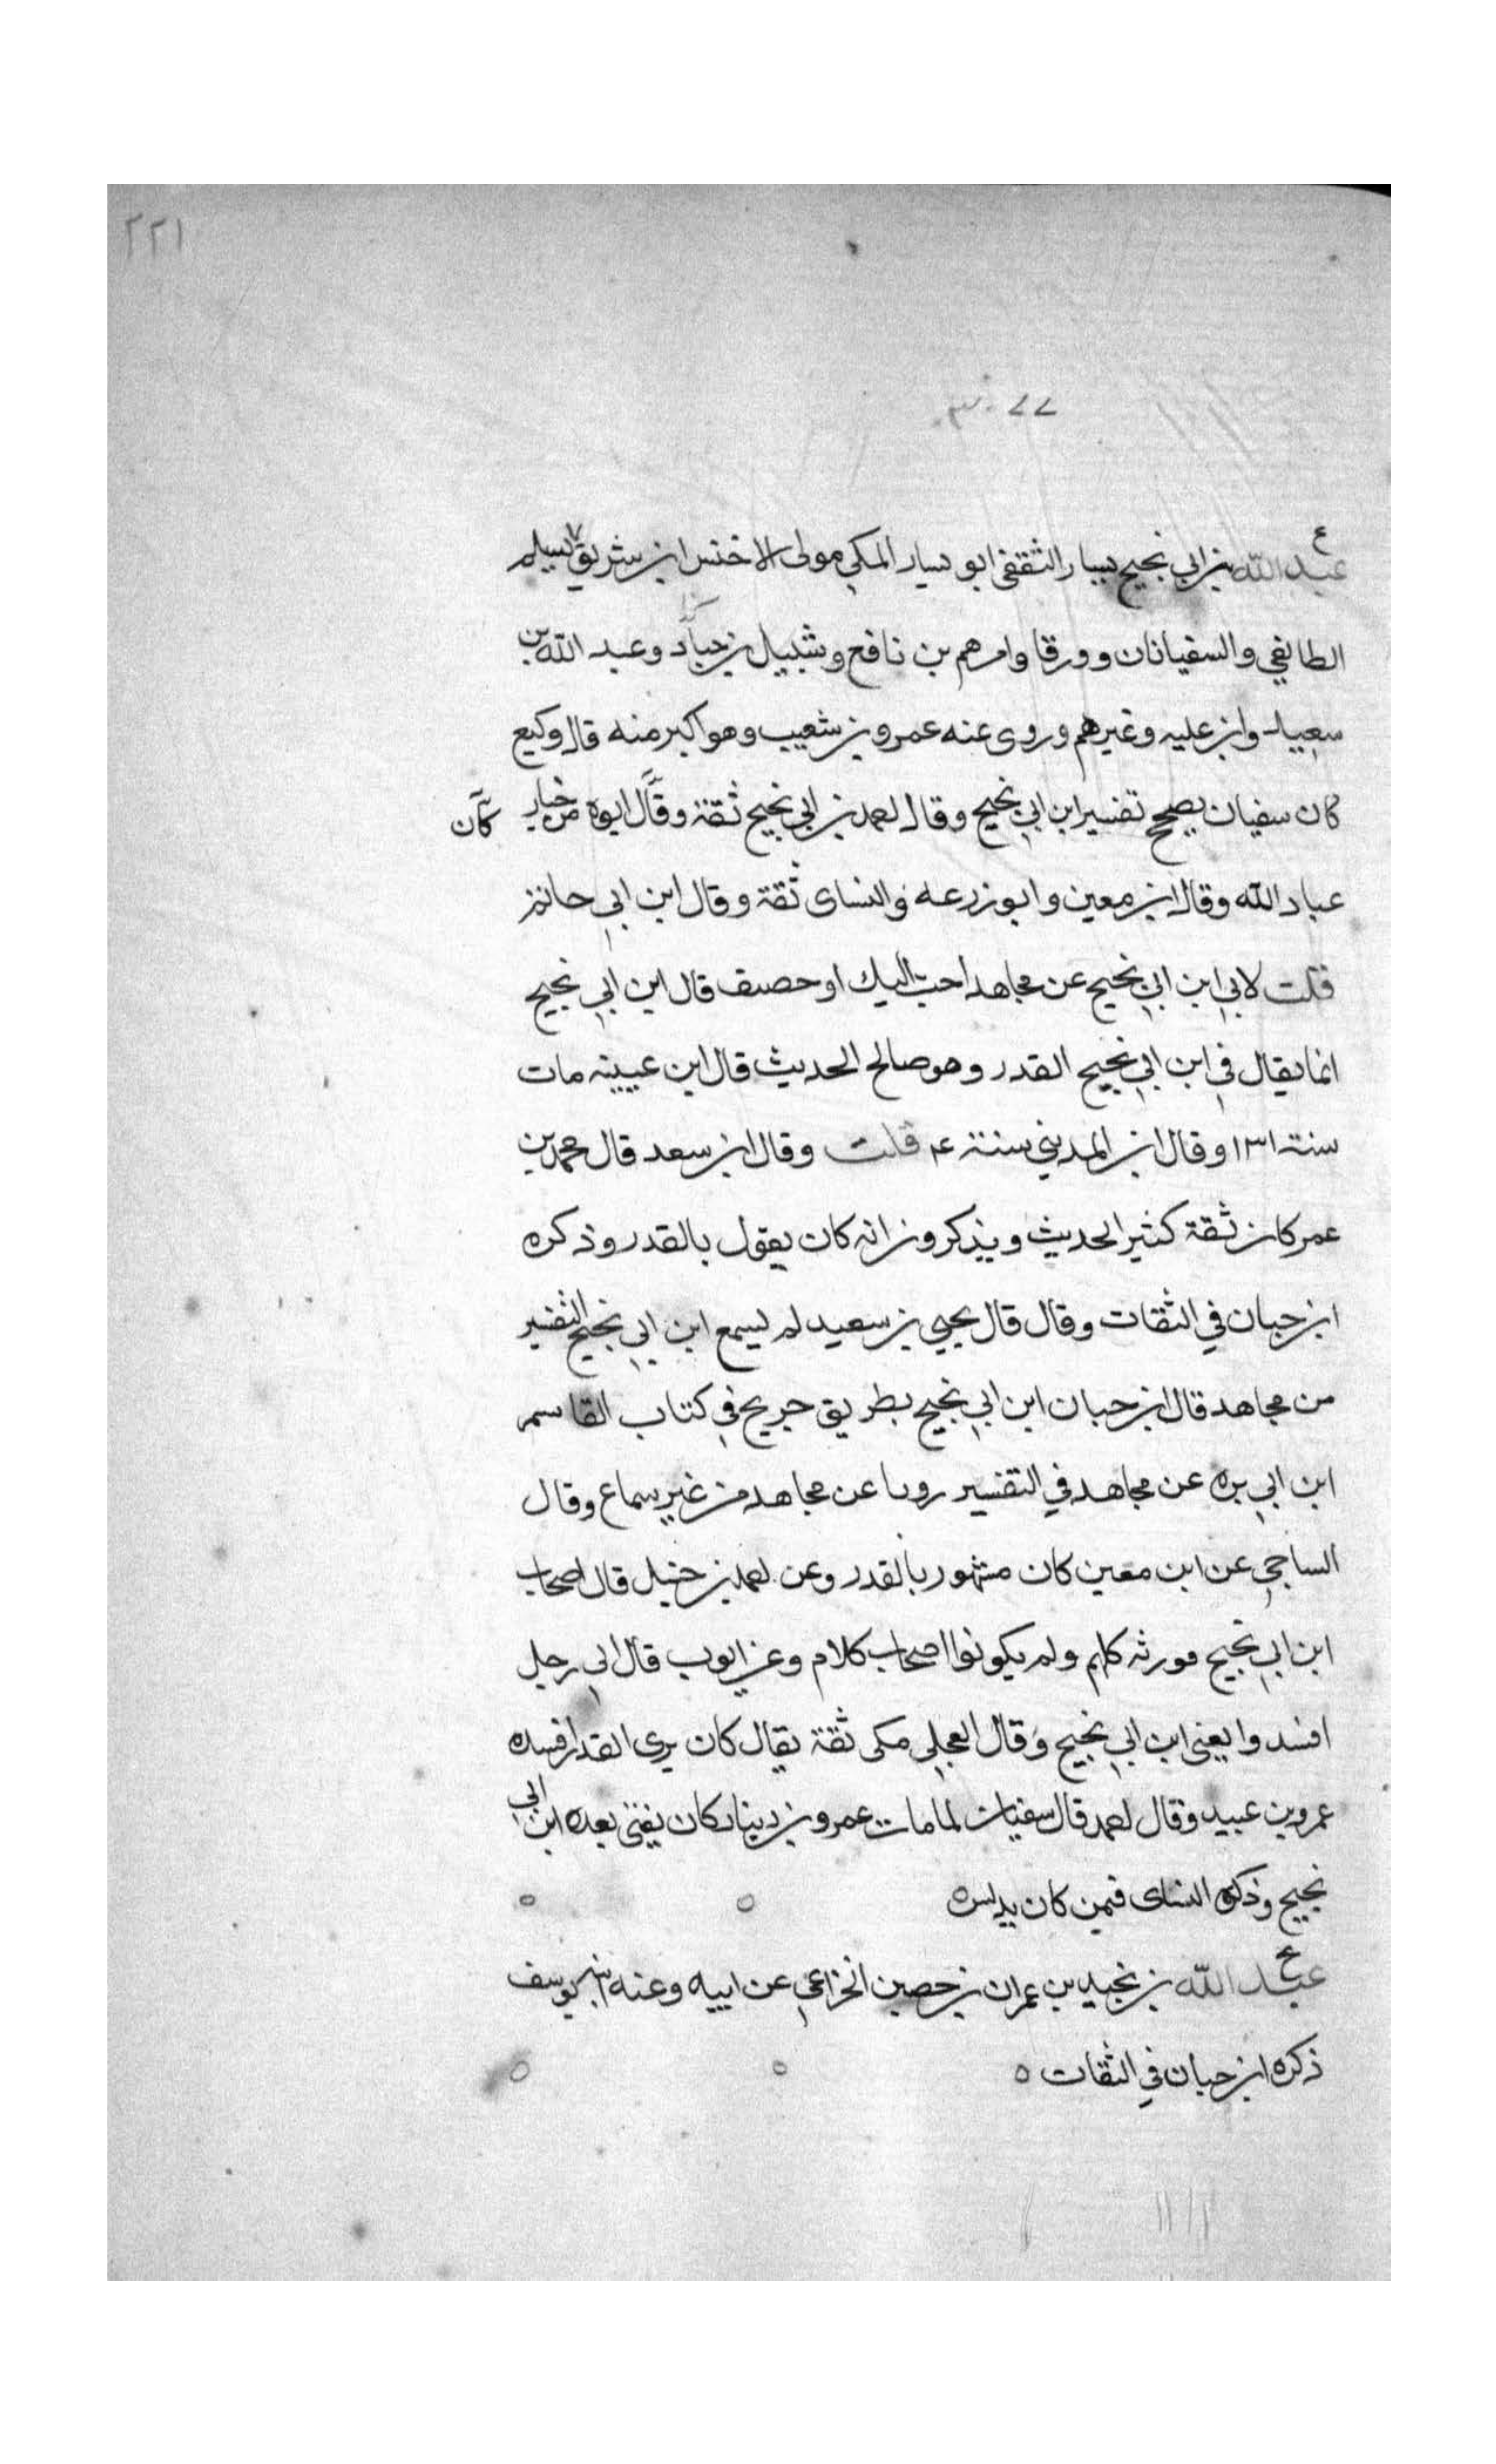 ٢٢١
ع
عبد الله بن ابي نجيح يسار الثقفي ابو يسار المكي مولى الاخنس ابن شريق
الطايفي والسفيانان وورقا وابرهيم بن نافع وشبيل بن عباد وعبد الله بن
سعيد وابن عليه وغيرهم وروى عنه عمرو بن شعيب وهو اكبر منه قال وكيع
كان سفيان يصحح تفسير ابن ابي نجيح وقال احمد بن ابي نجيح ثقة وقال ابوه من خيار
كان
عباد الله وقال ابن معين وابو زرعه والنساى ثقة وقال ابن ابي حاتم
قلت لابي ابن ابي نجيح عن مجاهد احب اليك او حصيف قال ابن ابي نجيح
انما يقال في ابن ابي نجيح القدر وهو صالح الحديث قال ابن عيينه مات
سنة ١٣١ وقال ابن المديني سنة قلت وقال ابن سعد قال محمد بن
عمر كان ثقة كثير الحديث ويذكرون انه كان يقول بالقدر وذكره
ابن حبان في الثقات وقال قال يحيى بن سعيد لم يسمع ابن ابي نجيح التفسير
من مجاهد قال ابن حبان ابن ابي نجيح بطريق جريح في كتاب القاسم
ابن ابي بره عن مجاهد في التفسير رويا عن مجاهد من غير سماع وقال
الساجي عن ابن معين كان مشهور بالقدر وعن احمد بن حنبل قال اصحاب
ابن ابي نجيح كلهم ولم يكونوا اصحاب كلام وعن ايوب قال اى رجل
افسدوا يعنى ابن ابي نجيح وقال العجلي مكى ثقة يقال كان يرى القدر افسده
عمرو بن عبيد وقال احمد قال سفيان لما مات عمرو بن دينار كان يفتى بعده ابن ابي
نجيح وذكره النساى فيمن كان يدلس ه
عبد الله بن نجيد بن عمران بن حصين الخزاعي عن ابيه وعنه ابنه يوسف
ذكره ابن حبان في الثقات ه